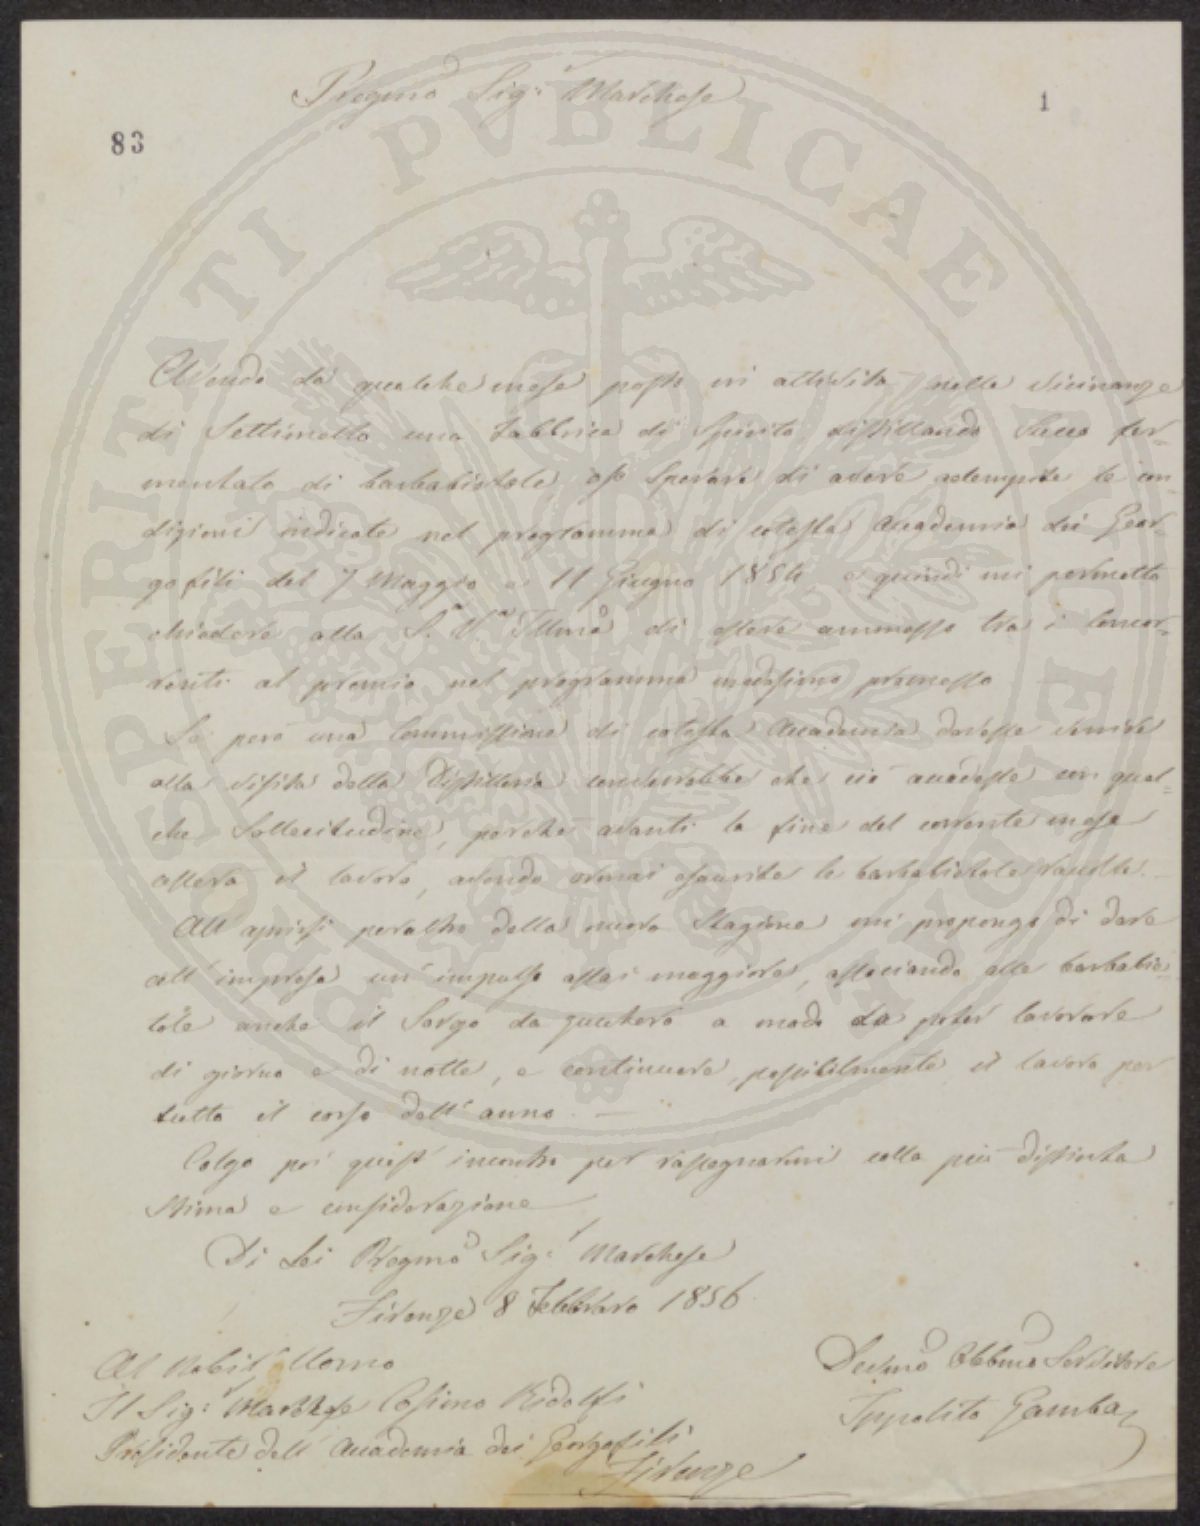 Pregmo Sig.r Marchese
1
83
Avendo da qualche mese posto in attività nelle vicinanze
di Settimello una Fabbrica di Spirito distillando Succo fer-
mentato di barbabietole, oso sperare di avere adempite le con-
dizioni indicate nel programma di cotesta Accademia dei Geor-
gofili del 7 Maggio e 11 Giugno 1854, e quindi mi permetto
chiedere alla S.a V.a Illma di essere ammesso tra i Concor-
renti al premio nel programma medesimo promesso
Se però una Commissione di cotesta Accademia dovesse venire
alla visita della Distilleria converrebbe che ciò accadesse con qual-
che Sollecitudine, perchè avanti la fine del corrente mese
cesserà il lavoro, avendo ormai esaurite le barbabietole raccolte.
All'aprirsi peraltro della nuova Stagione mi propongo di dare
all'impresa un'impulso assai maggiore, associando alle barbabie-
tole anche il Sorgo da zucchero a modo da poter lavorare
di giorno e di notte, e continuare, possibilmente il lavoro per
tutto il corso dell'anno. —
Colgo poi quest'incontro per rassegnarmi colla più distinta
Stima e considerazione
Di Lei Pregmo Sig.r Marchese
Firenze 8 Febbraro 1856
Al Nobil Uomo
Il Sig.r Marchese Cosimo Ridolfi
Presidente dell'Accademia dei Georgofili
Firenze
Devmo Obbmo Servitore
Ippolito Gamba
PROSPERITATI PVBLICAE AVGENDAE